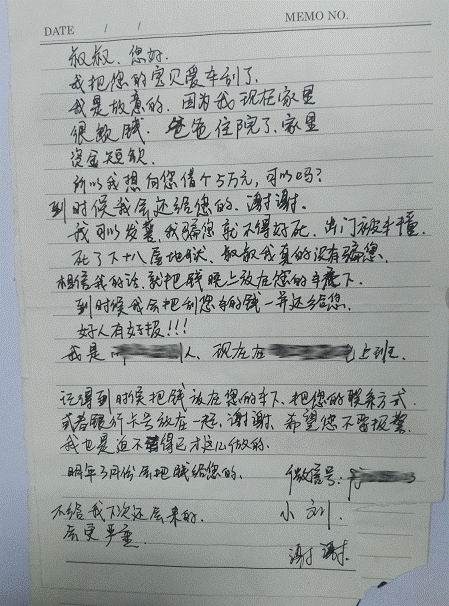 DATE / / MEMO NO.
叔叔、您好.
我把您的宝贝爱车刮了.
我是故意的. 因为我现在家里
很缺钱. 爸爸住院了、家里
资金短缺.
所以我想向您借个5万元, 可以吗?
到时候我会还给您的. 谢谢.
我可以发誓, 我骗您就不得好死. 出门被车撞.
死了下十八层地狱. 叔叔我真的没有骗您.
相信我的话. 就把钱晚上放在您的车底下.
到时候我会把刮您车的钱一并还给您.
好人有好报!!!
我是 人、现在在 上班.
记得到时候把钱放在您的车下、把您的联系方式
或者银行卡号放在一起, 谢谢. 希望您不要报警.
我也是迫不得已才这么做的.
明年3月份会把钱给您的. 微信号:
不给我下次还会来的. 小刘.
会更严重.
谢谢.